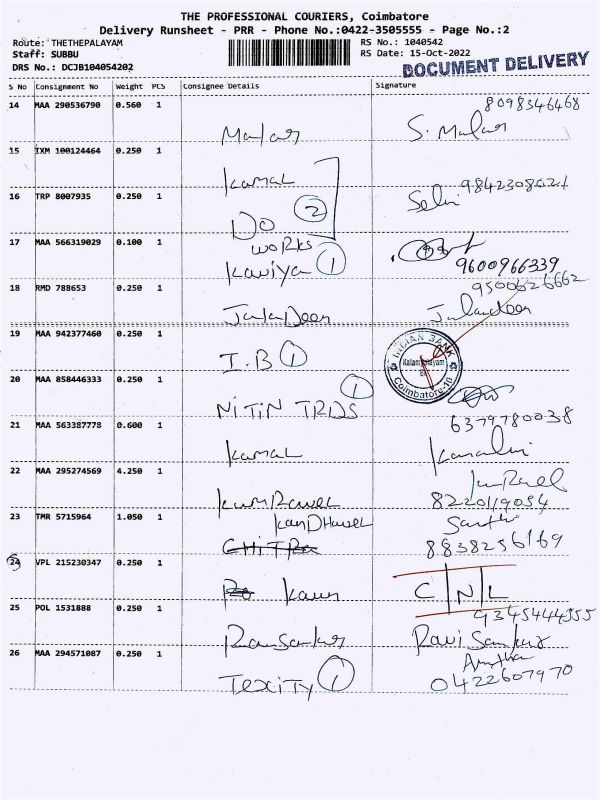 THE PROFESSIONAL COURIERS, Coimbatore
Delivery Runsheet - PRR - Phone No.:0422-3505555 - Page No.:2
Route: THETHEPALAYAM RS No.: 1040542
Staff: SUBBU RS Date: 15-Oct-2022
DRS No.: DCJB104054202 DOCUMENT DELIVERY
S No Consignment No Weight PCS Consignee Details Signature
14 MAA 290536790 0.560 1 8098346468
Malar S. Malar
15 IXM 100124464 0.250 1
Kamal
16 TRP 8007935 0.250 1 Selvi
DO 2
17 MAA 566319029 0.100 1 works
Kaviya 1 9600966339
18 RMD 788653 0.250 1 9500626662
19 MAA 942377460 0.250 1
I.B 1 INDIAN BANK
Coimbatore-10
20 MAA 858446333 0.250 1 1
NITIN TRDS
21 MAA 563387778 0.600 1 6379780038
Kamal
22 MAA 295274569 4.250 1
8220119054
23 TMR 5715964 1.050 1
CHITRA 8838256169
24 VPL 215230347 0.250 1
C N L
25 POL 1531888 0.250 1 9345444555
Ravi Sankar
26 MAA 294571087 0.250 1
Texity 1 0422607970